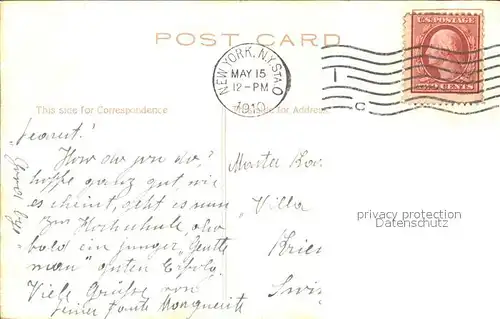 POST CARD
NEW YORK, N.Y. STA O
MAY 15
12-PM
1910
1
C
U.S. POSTAGE
2 CENTS 2
This side for Correspondence
side for Address
Dearest!
How do you do?
hoffe ganz gut wie
es scheint, geht es nun
zur Hochschule, also
bald ein junger "Gentle
man" guten Erfolg.
Viele Grüsse von
Deiner Tante Marguerite
Good bye
Marta
"Villa
Krien
Swi
privacy protection
Datenschutz